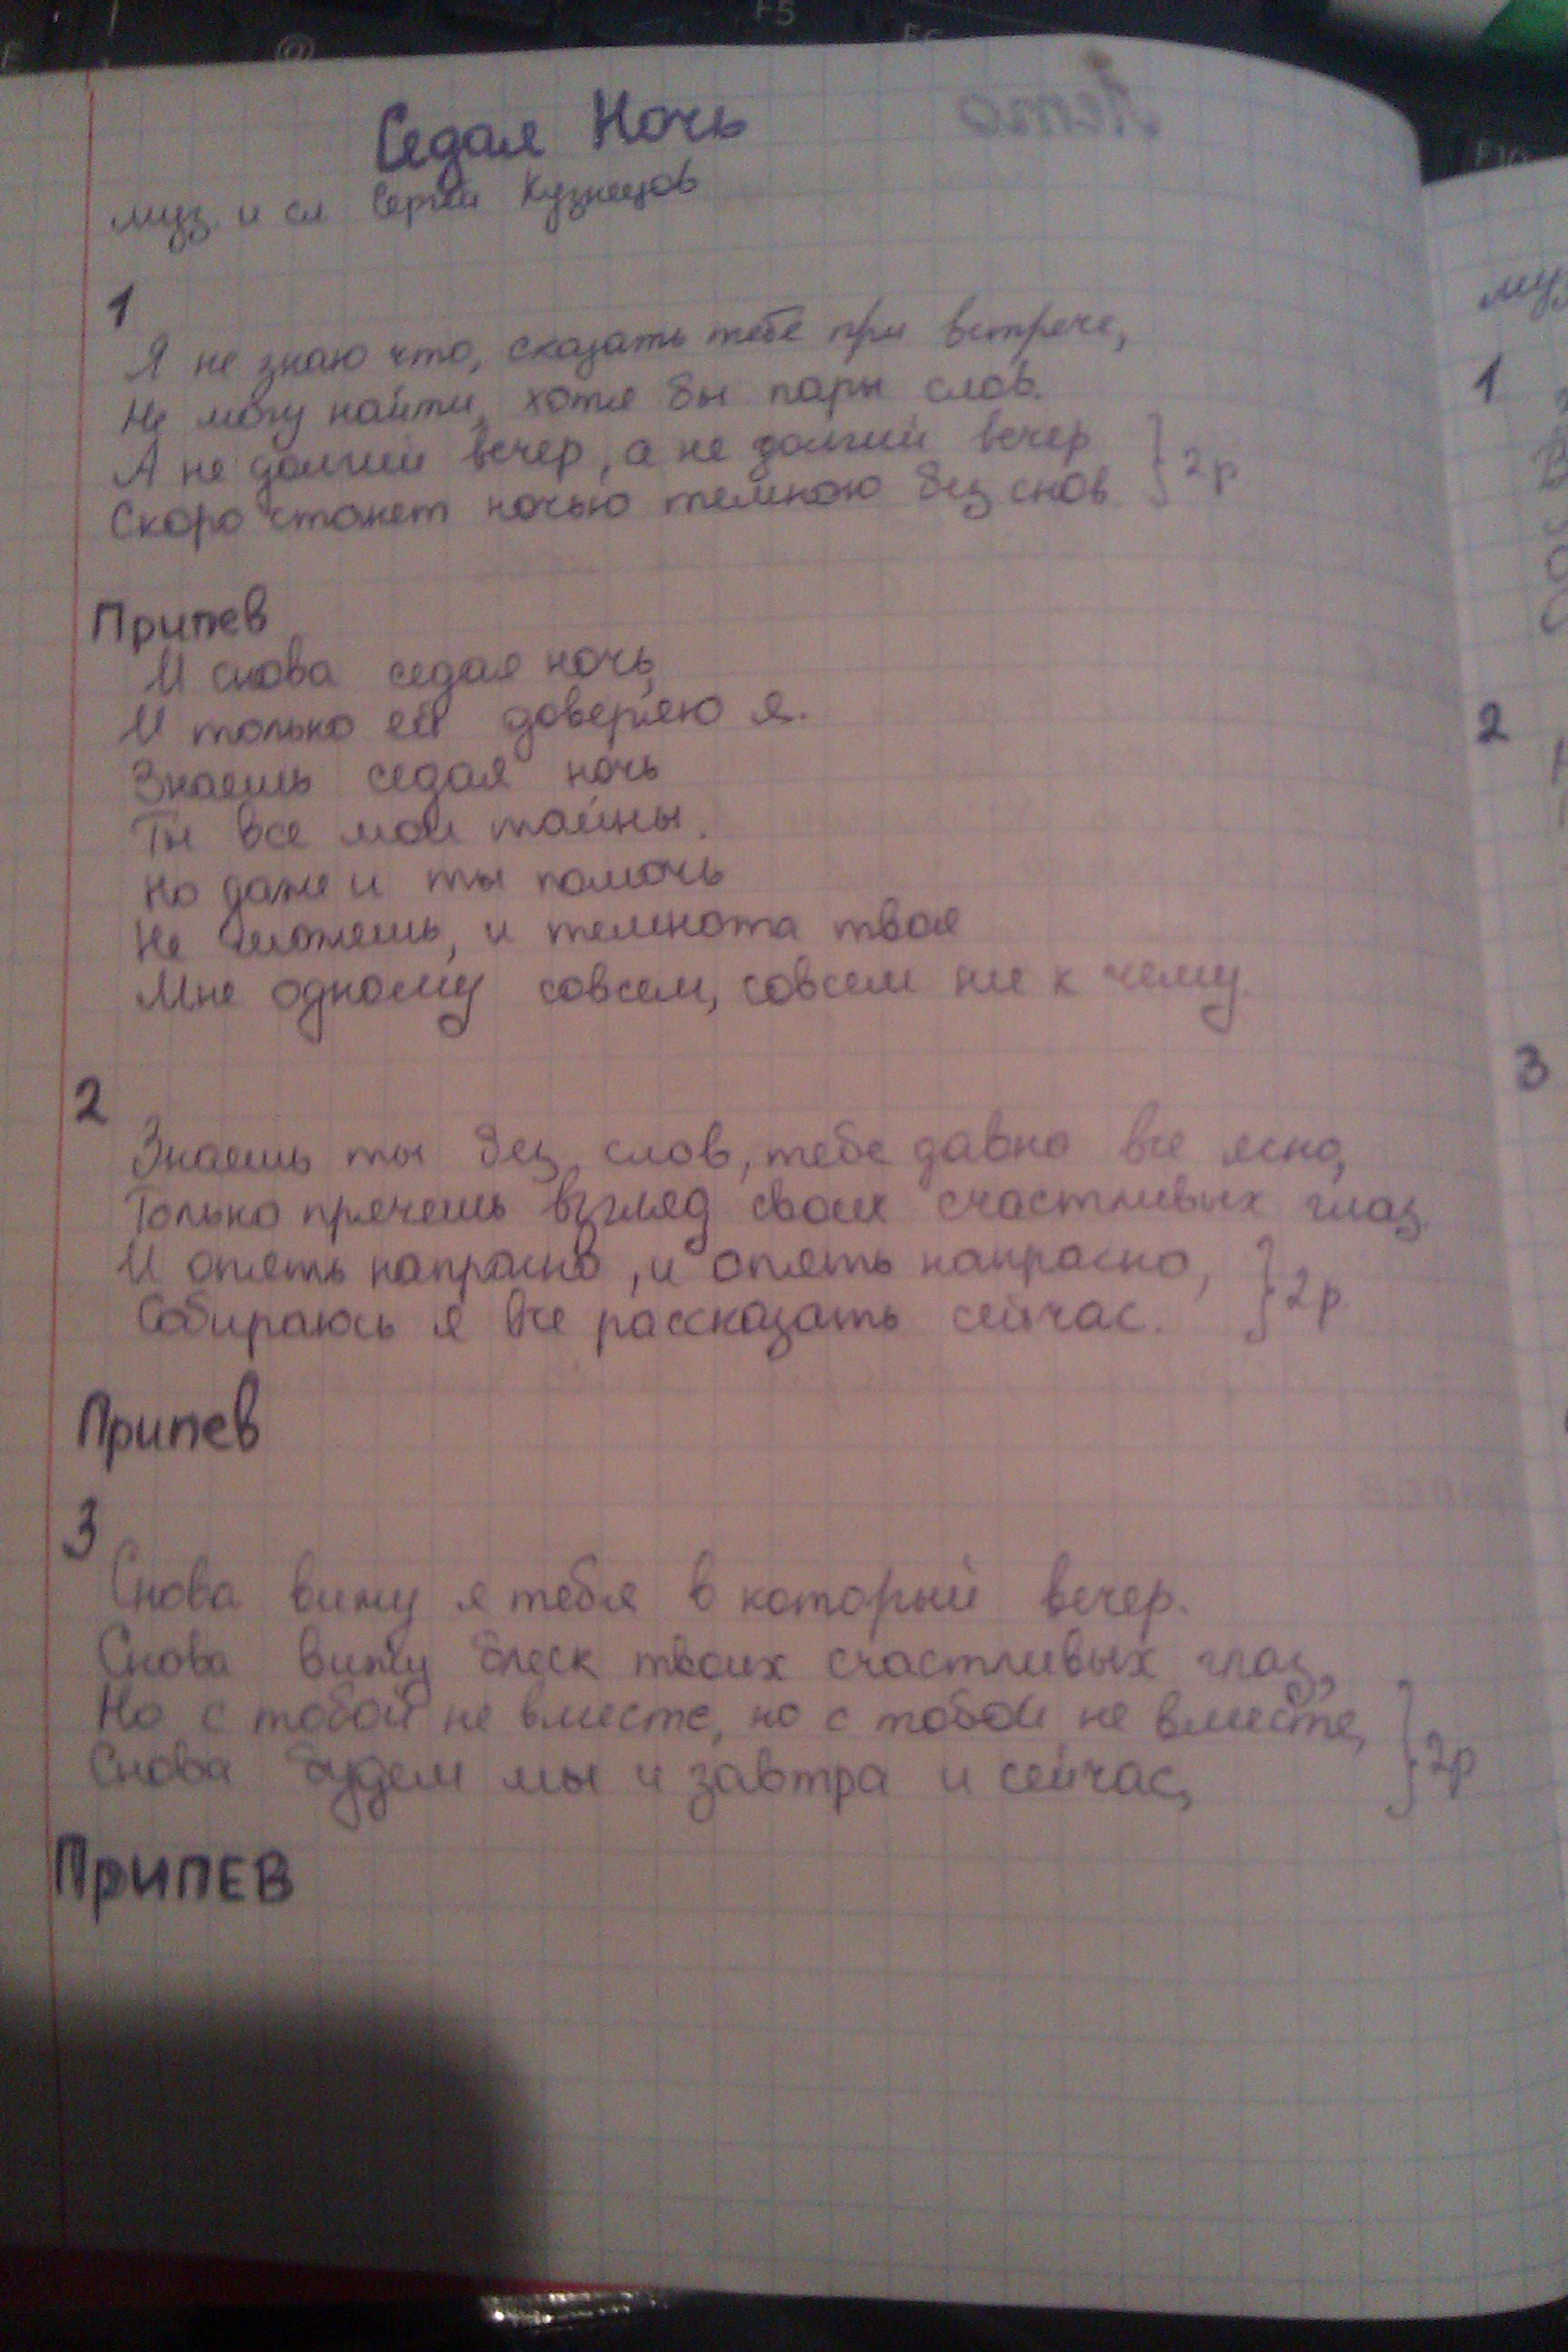 Седая Ночь
муз. и сл Сергей Кузнецов
1
Я не знаю что, сказать тебе при встрече,
Не могу найти, хотя бы пары слов.
А не долгий вечер, а не долгий вечер
Скоро станет ночью темною без снов. } 2р
Припев
И снова седая ночь,
И только ей доверяю я.
Знаешь седая ночь
Ты все мои тайны.
Но даже и ты помочь
Не можешь, и темнота твоя
Мне одному совсем, совсем ни к чему.
2
Знаешь ты без слов, тебе давно все ясно,
Только прячешь взгляд своих счастливых глаз.
И опять напрасно, и опять напрасно,
Собираюсь я все рассказать сейчас. } 2р.
Припев
3
Снова вижу я тебя в который вечер.
Снова вижу блеск твоих счастливых глаз,
Но с тобой не вместе, но с тобой не вместе,
Снова будем мы и завтра и сейчас, } 2р
ПРИПЕВ
муз
1
В
2
3
F5
F6
F10
@